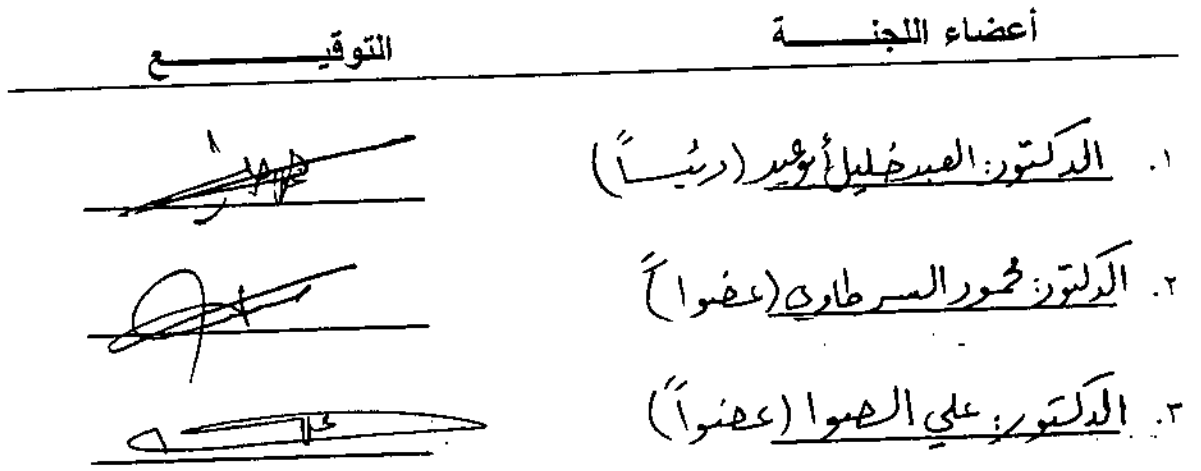 أعضاء اللجنة التوقيع
١. الدكتور: العبد خليل أبو عيد (رئيساً)
٢. الدكتور: محمود السرطاوي (عضواً)
٣. الدكتور: علي الصوا (عضواً)